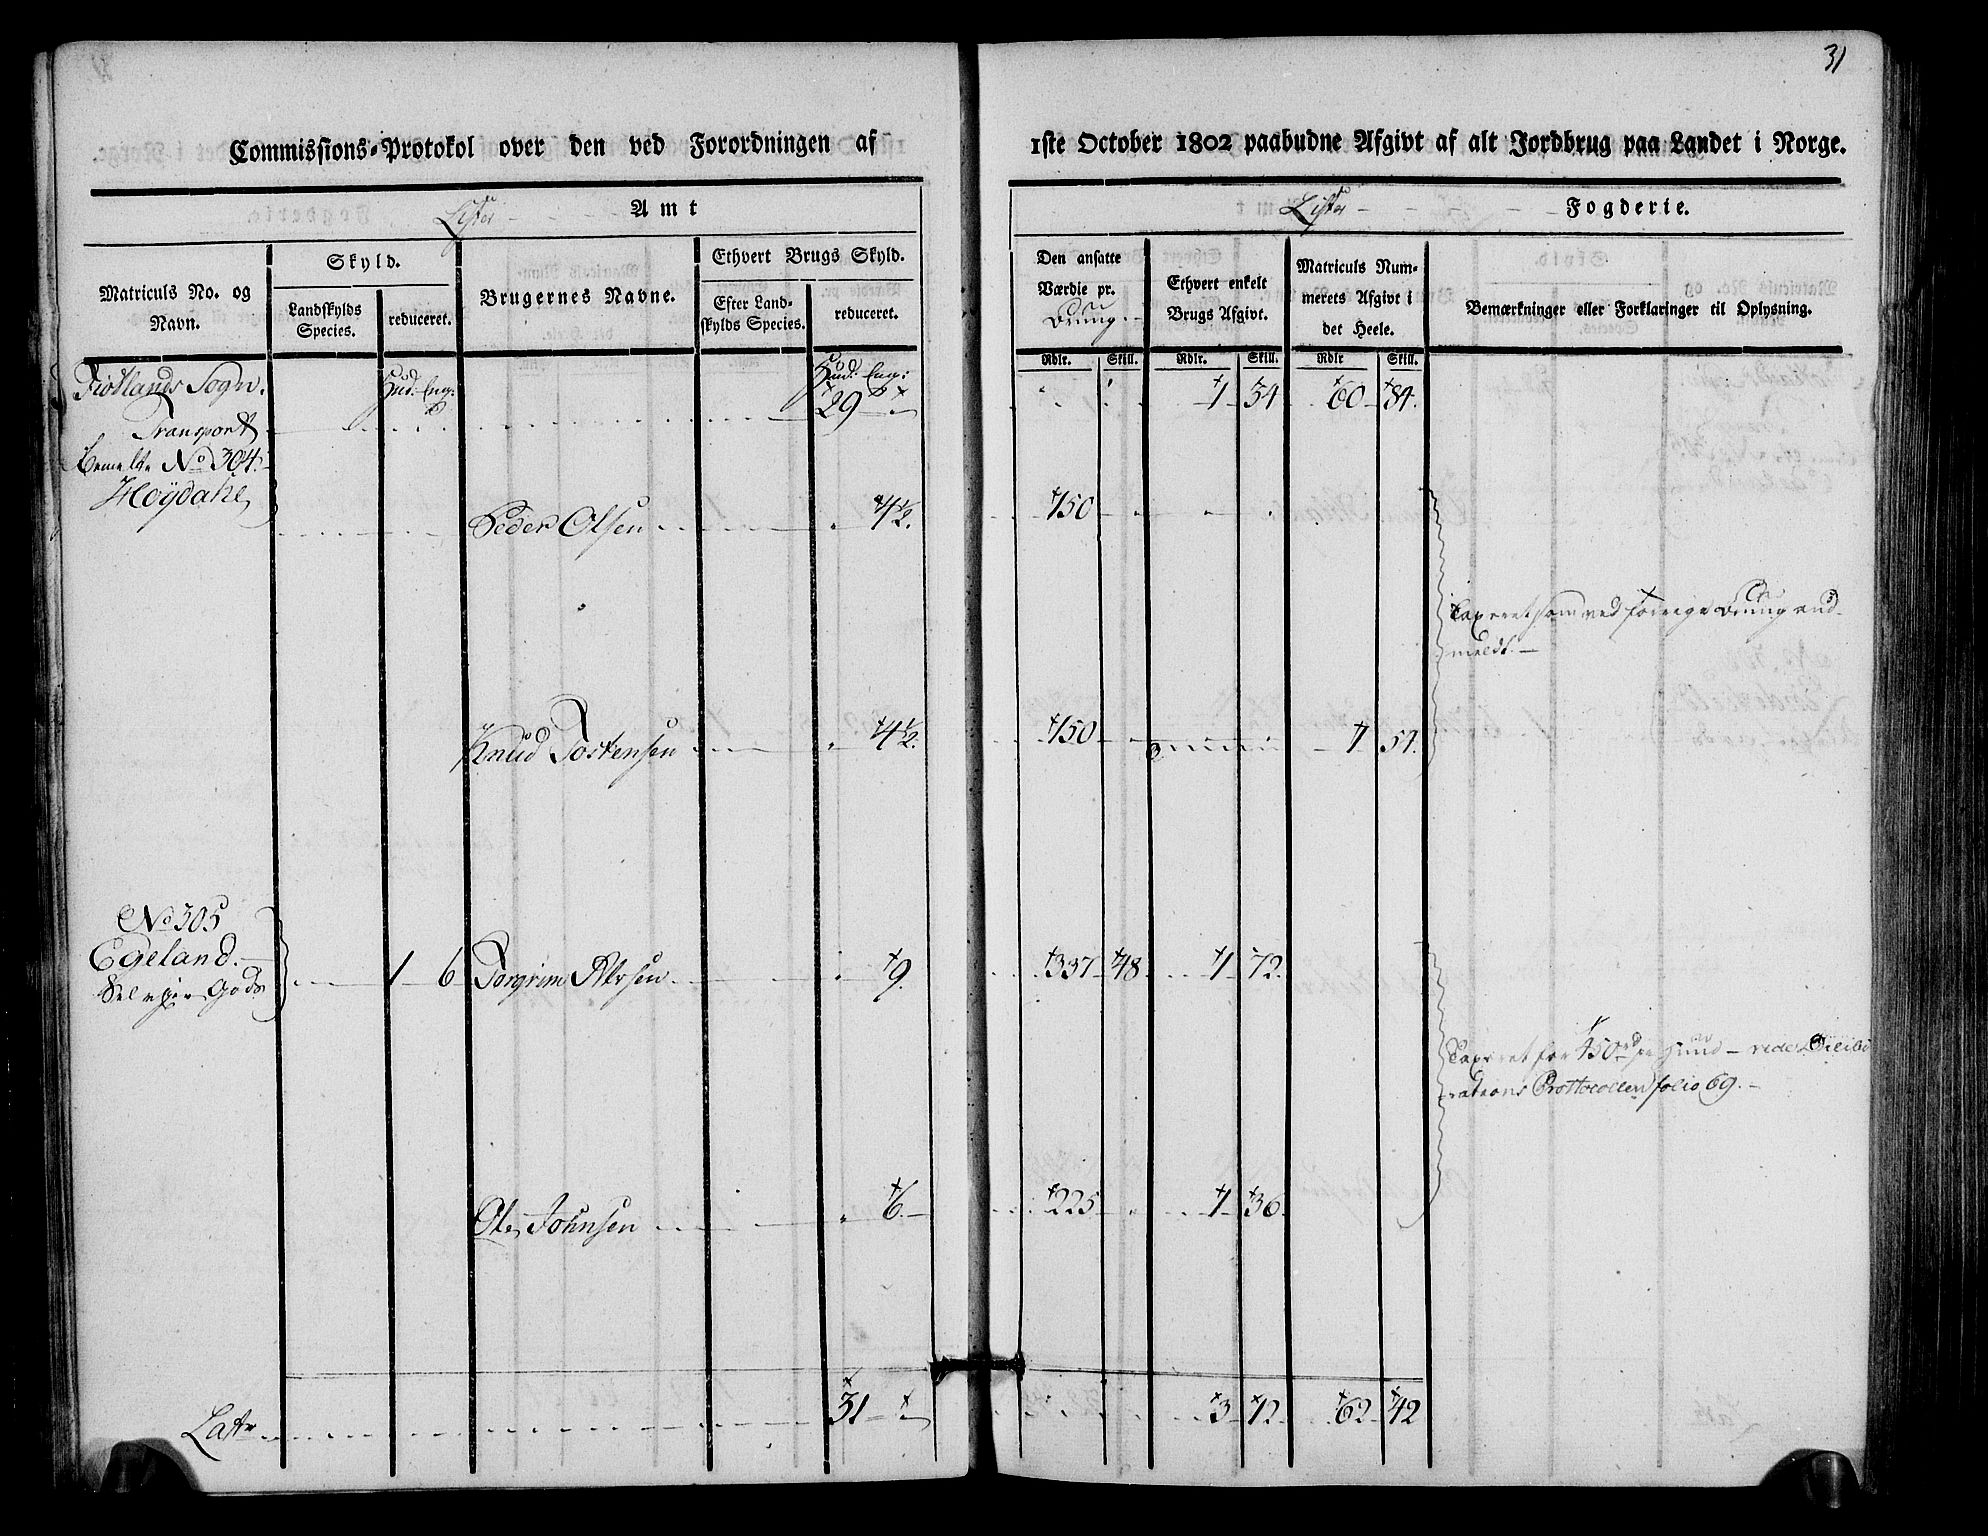 31
Commissions-Protokol over den ved Forordningen af
1ste October 1802 paabudne Afgivt af alt Jordbrug paa Landet i Norge.
Lister Amt
Lister Fogderie.
Matriculs No. og Navn.
Skyld.
Landskylds Species.
reduceret.
Brugernes Navne.
Ethvert Brugs Skyld.
Efter Landskylds Species.
reduceret.
Den ansatte Værdie pr.
Ethvert enkelt Brugs Afgivt.
Matriculs Nummerets Afgivt i det Heele.
Bemærkninger eller Forklaringer til Oplysning.
Rdlr. Skill. Rdlr. Skill. Rdlr Skill.
Fiotlands Sogn. Hud: Eng: Hud: Eng:
Transport 29 1 34 60 84.
bemelte No 304.
Høÿdahl
Peder Olsen 4½. 150
Taxeret som ved forrige
meldt.
Knud Torkensen 4½. 150 1 54.
No 305
Egeland. 1 6 Torgrim 9. 337 48 1 72.
Selveier Gods
Taxeret for 450 rd pr Huud - vide Delibe
rations Prottocollen folio 69.
Ole Johnsen 6. 225 1 36.
Latr 31 3 12 62 42